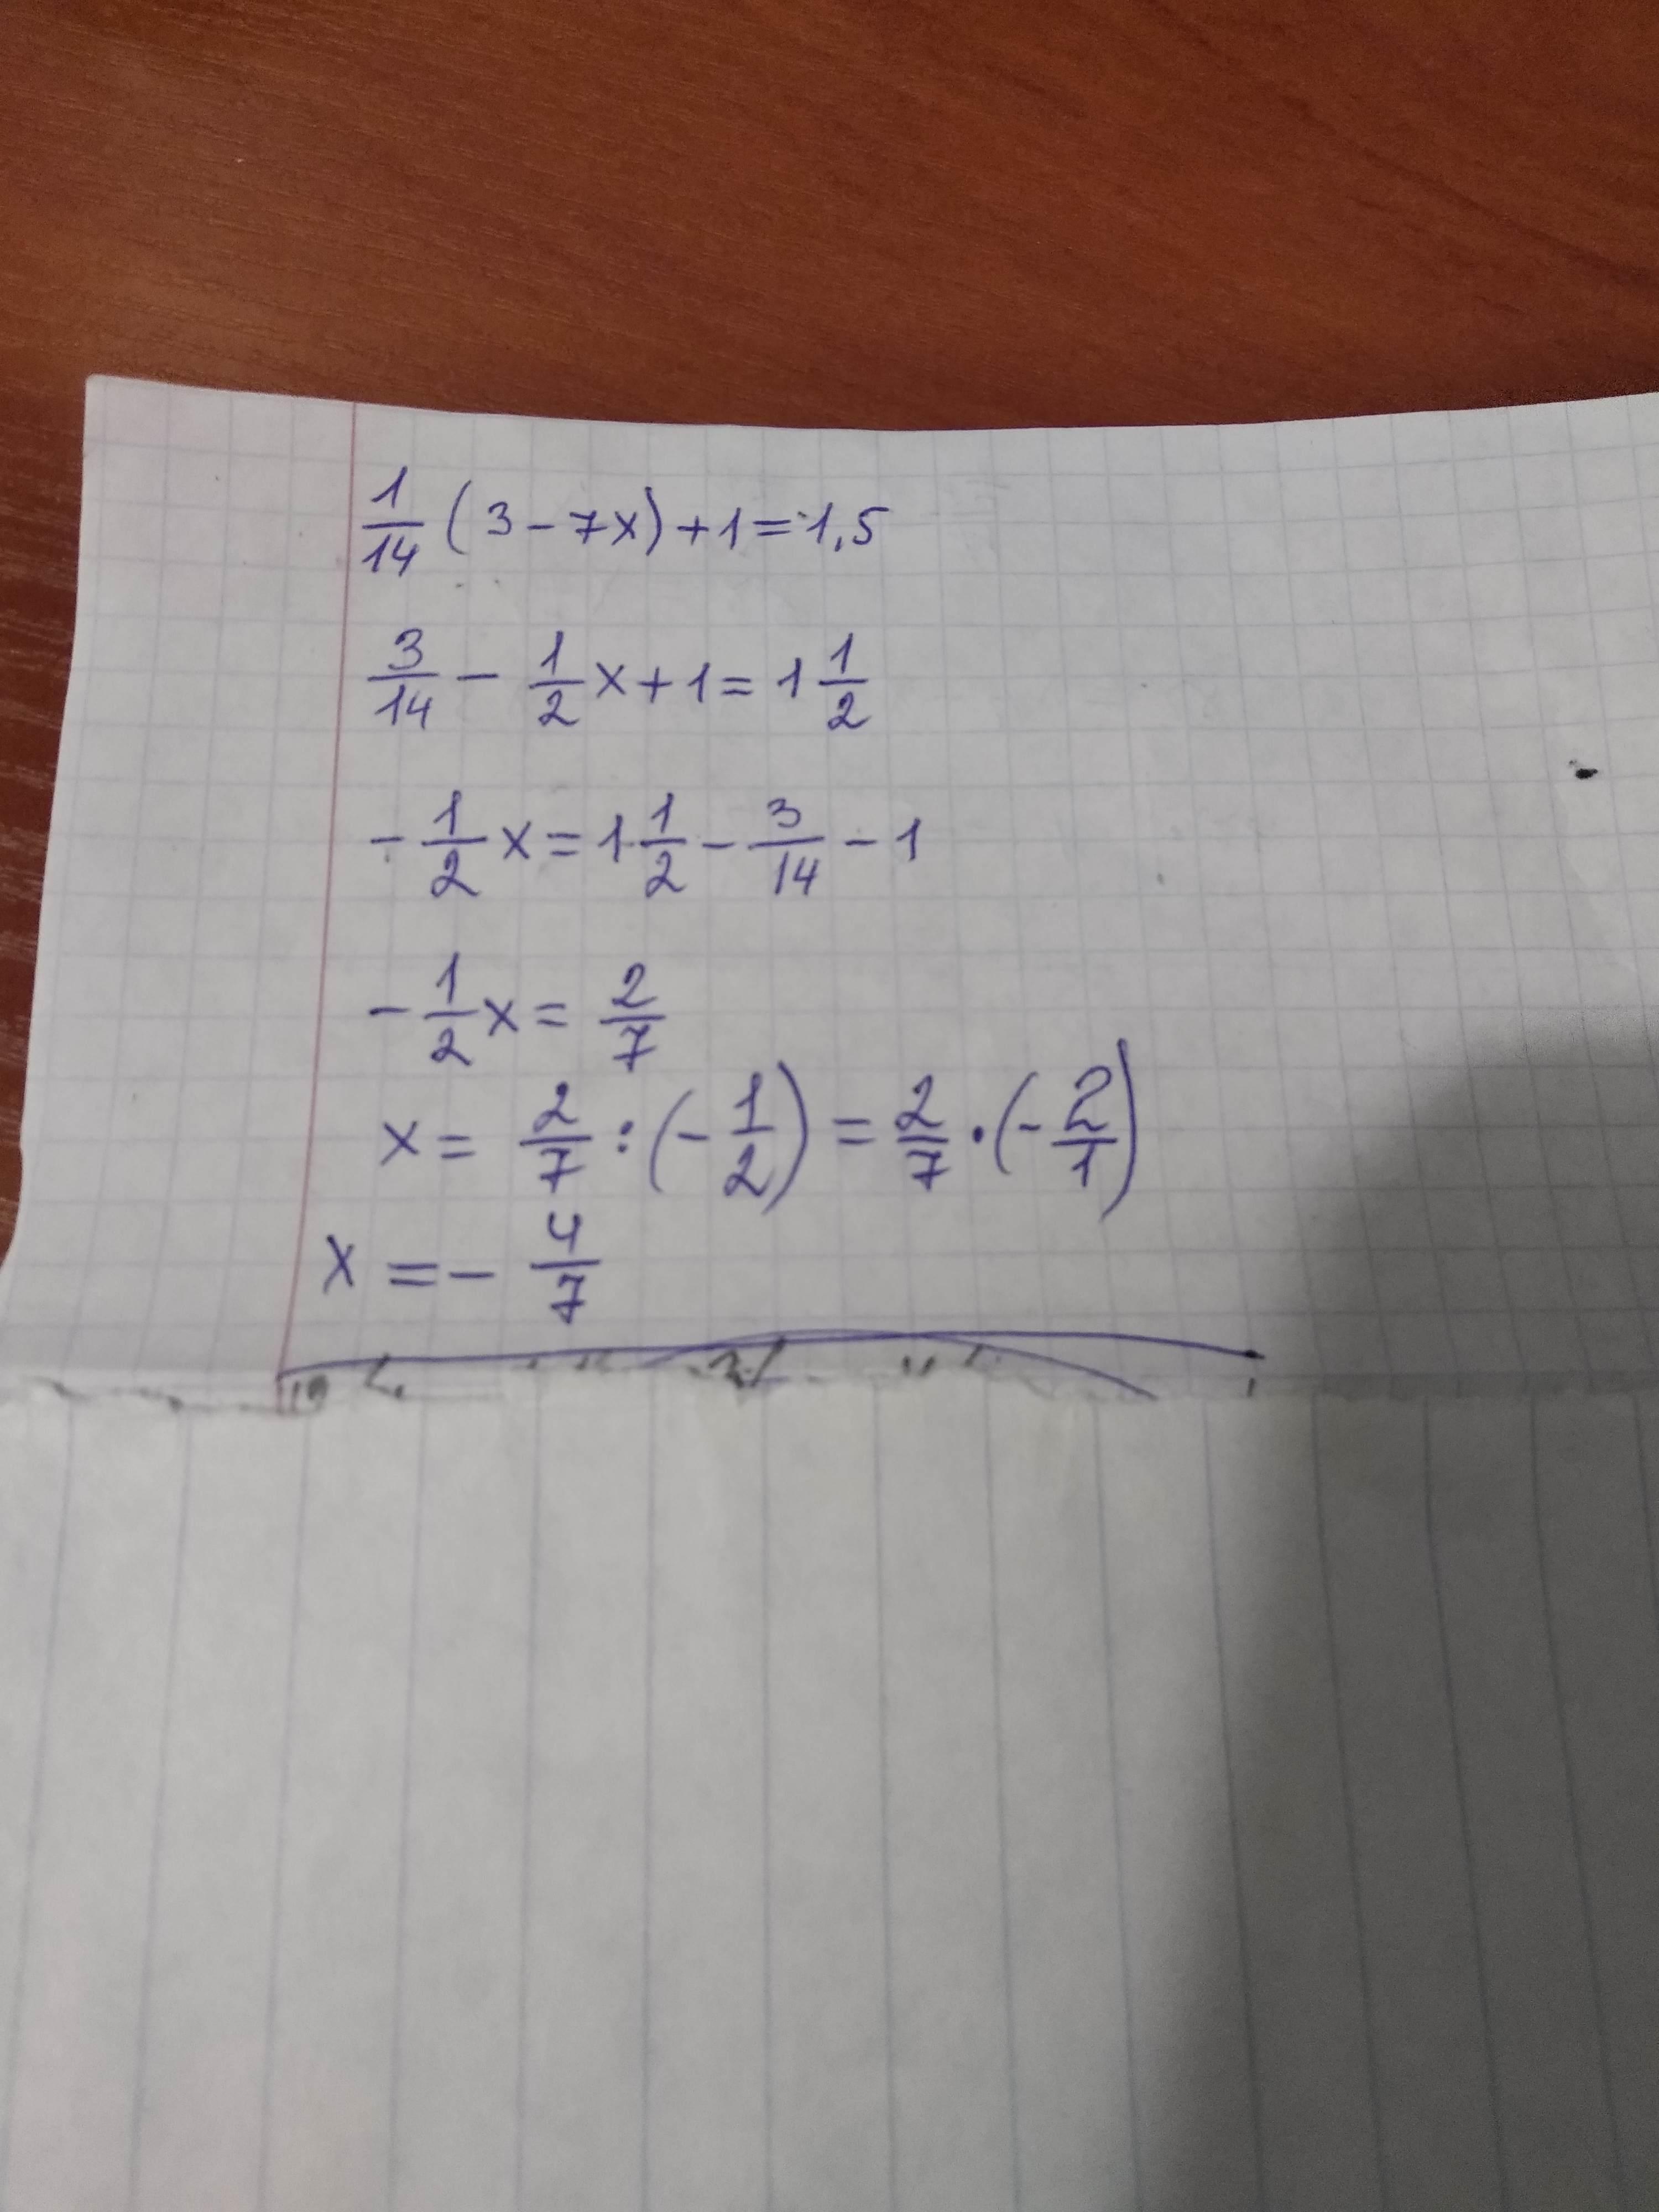 1/14 (3 - 7x) + 1 = 1,5
3/14 - 1/2 x + 1 = 1 1/2
- 1/2 x = 1 1/2 - 3/14 - 1
- 1/2 x = 2/7
x = 2/7 : (- 1/2) = 2/7 · (- 2/1)
x = - 4/7